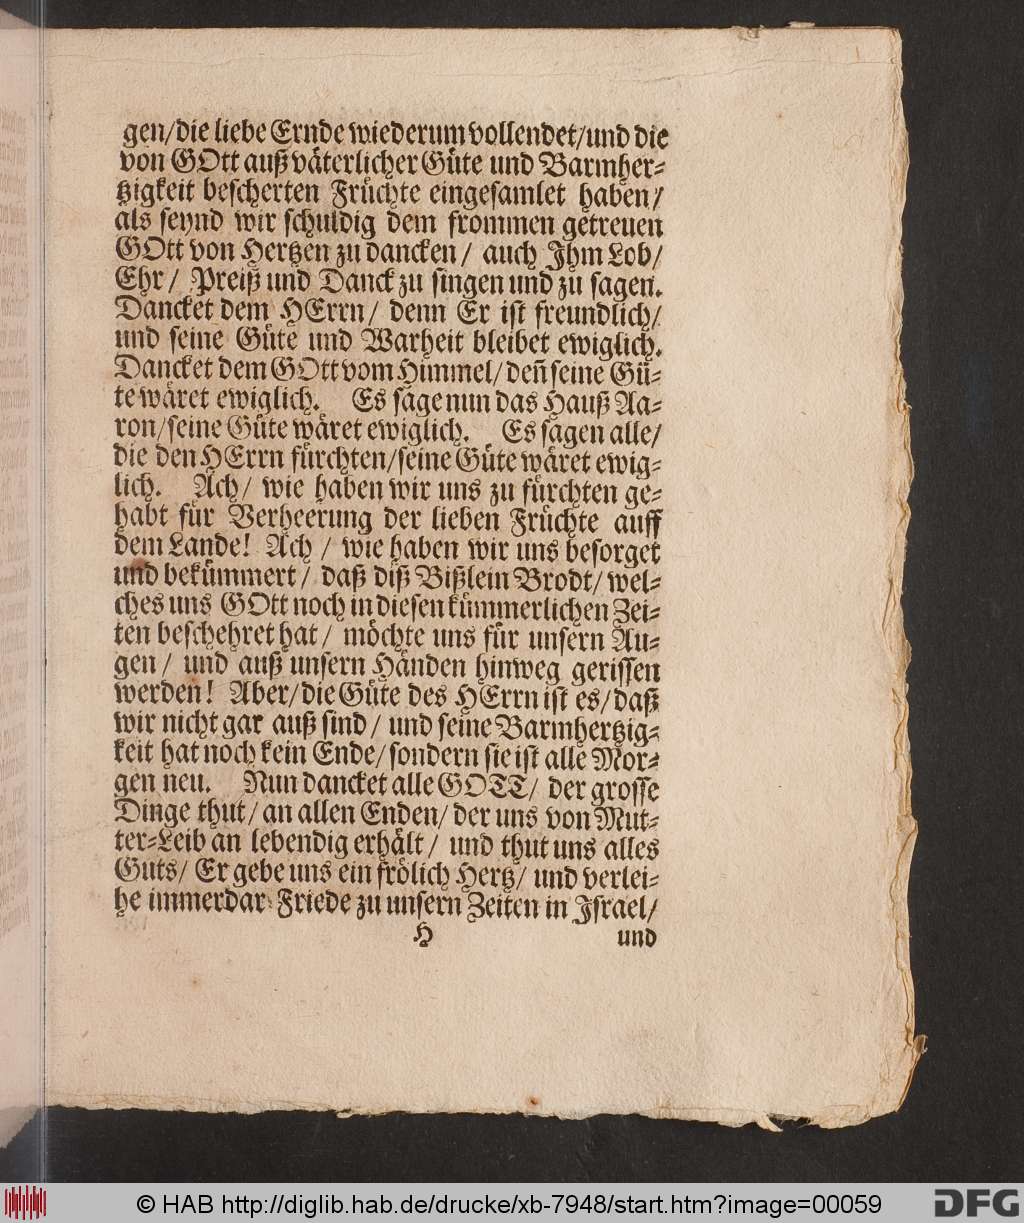 gen/die liebe Ernde wiederum vollendet/und die
von GOtt auß väterlicher Güte und Barmher-
tzigkeit bescherten Früchte eingesamlet haben/
als seynd wir schuldig dem frommen getreuen
GOtt von Hertzen zu dancken/ auch Ihm Lob/
Ehr/ Preiß und Danck zu singen und zu sagen.
Dancket dem HErrn/ denn Er ist freundlich/
und seine Güte und Warheit bleibet ewiglich.
Dancket dem GOtt vom Himmel/ deñ seine Gü-
te wäret ewiglich. Es sage nun das Hauß Aa-
ron/seine Güte wäret ewiglich. Es sagen alle/
die den HErrn fürchten/seine Güte wäret ewig-
lich. Ach/ wie haben wir uns zu fürchten ge-
habt für Verheerung der lieben Früchte auff
dem Lande! Ach / wie haben wir uns besorget
und bekümmert/ daß diß Bißlein Brodt/ wel-
ches uns GOtt noch in diesen kümmerlichen Zei-
ten beschehret hat/ möchte uns für unsern Au-
gen/ und auß unsern Händen hinweg gerissen
werden! Aber/die Güte des HErrn ist es/daß
wir nicht gar auß sind/ und seine Barmhertzig-
keit hat noch kein Ende/sondern sie ist alle Mor-
gen neu. Nun dancket alle GOTT/ der grosse
Dinge thut/an allen Enden/der uns von Mut-
ter-Leib an lebendig erhält/ und thut uns alles
Guts/ Er gebe uns ein frölich Hertz/ und verlei-
he immerdar Friede zu unsern Zeiten in Israel/
H und
© HAB http://diglib.hab.de/drucke/xb-7948/start.htm?image=00059 DFG